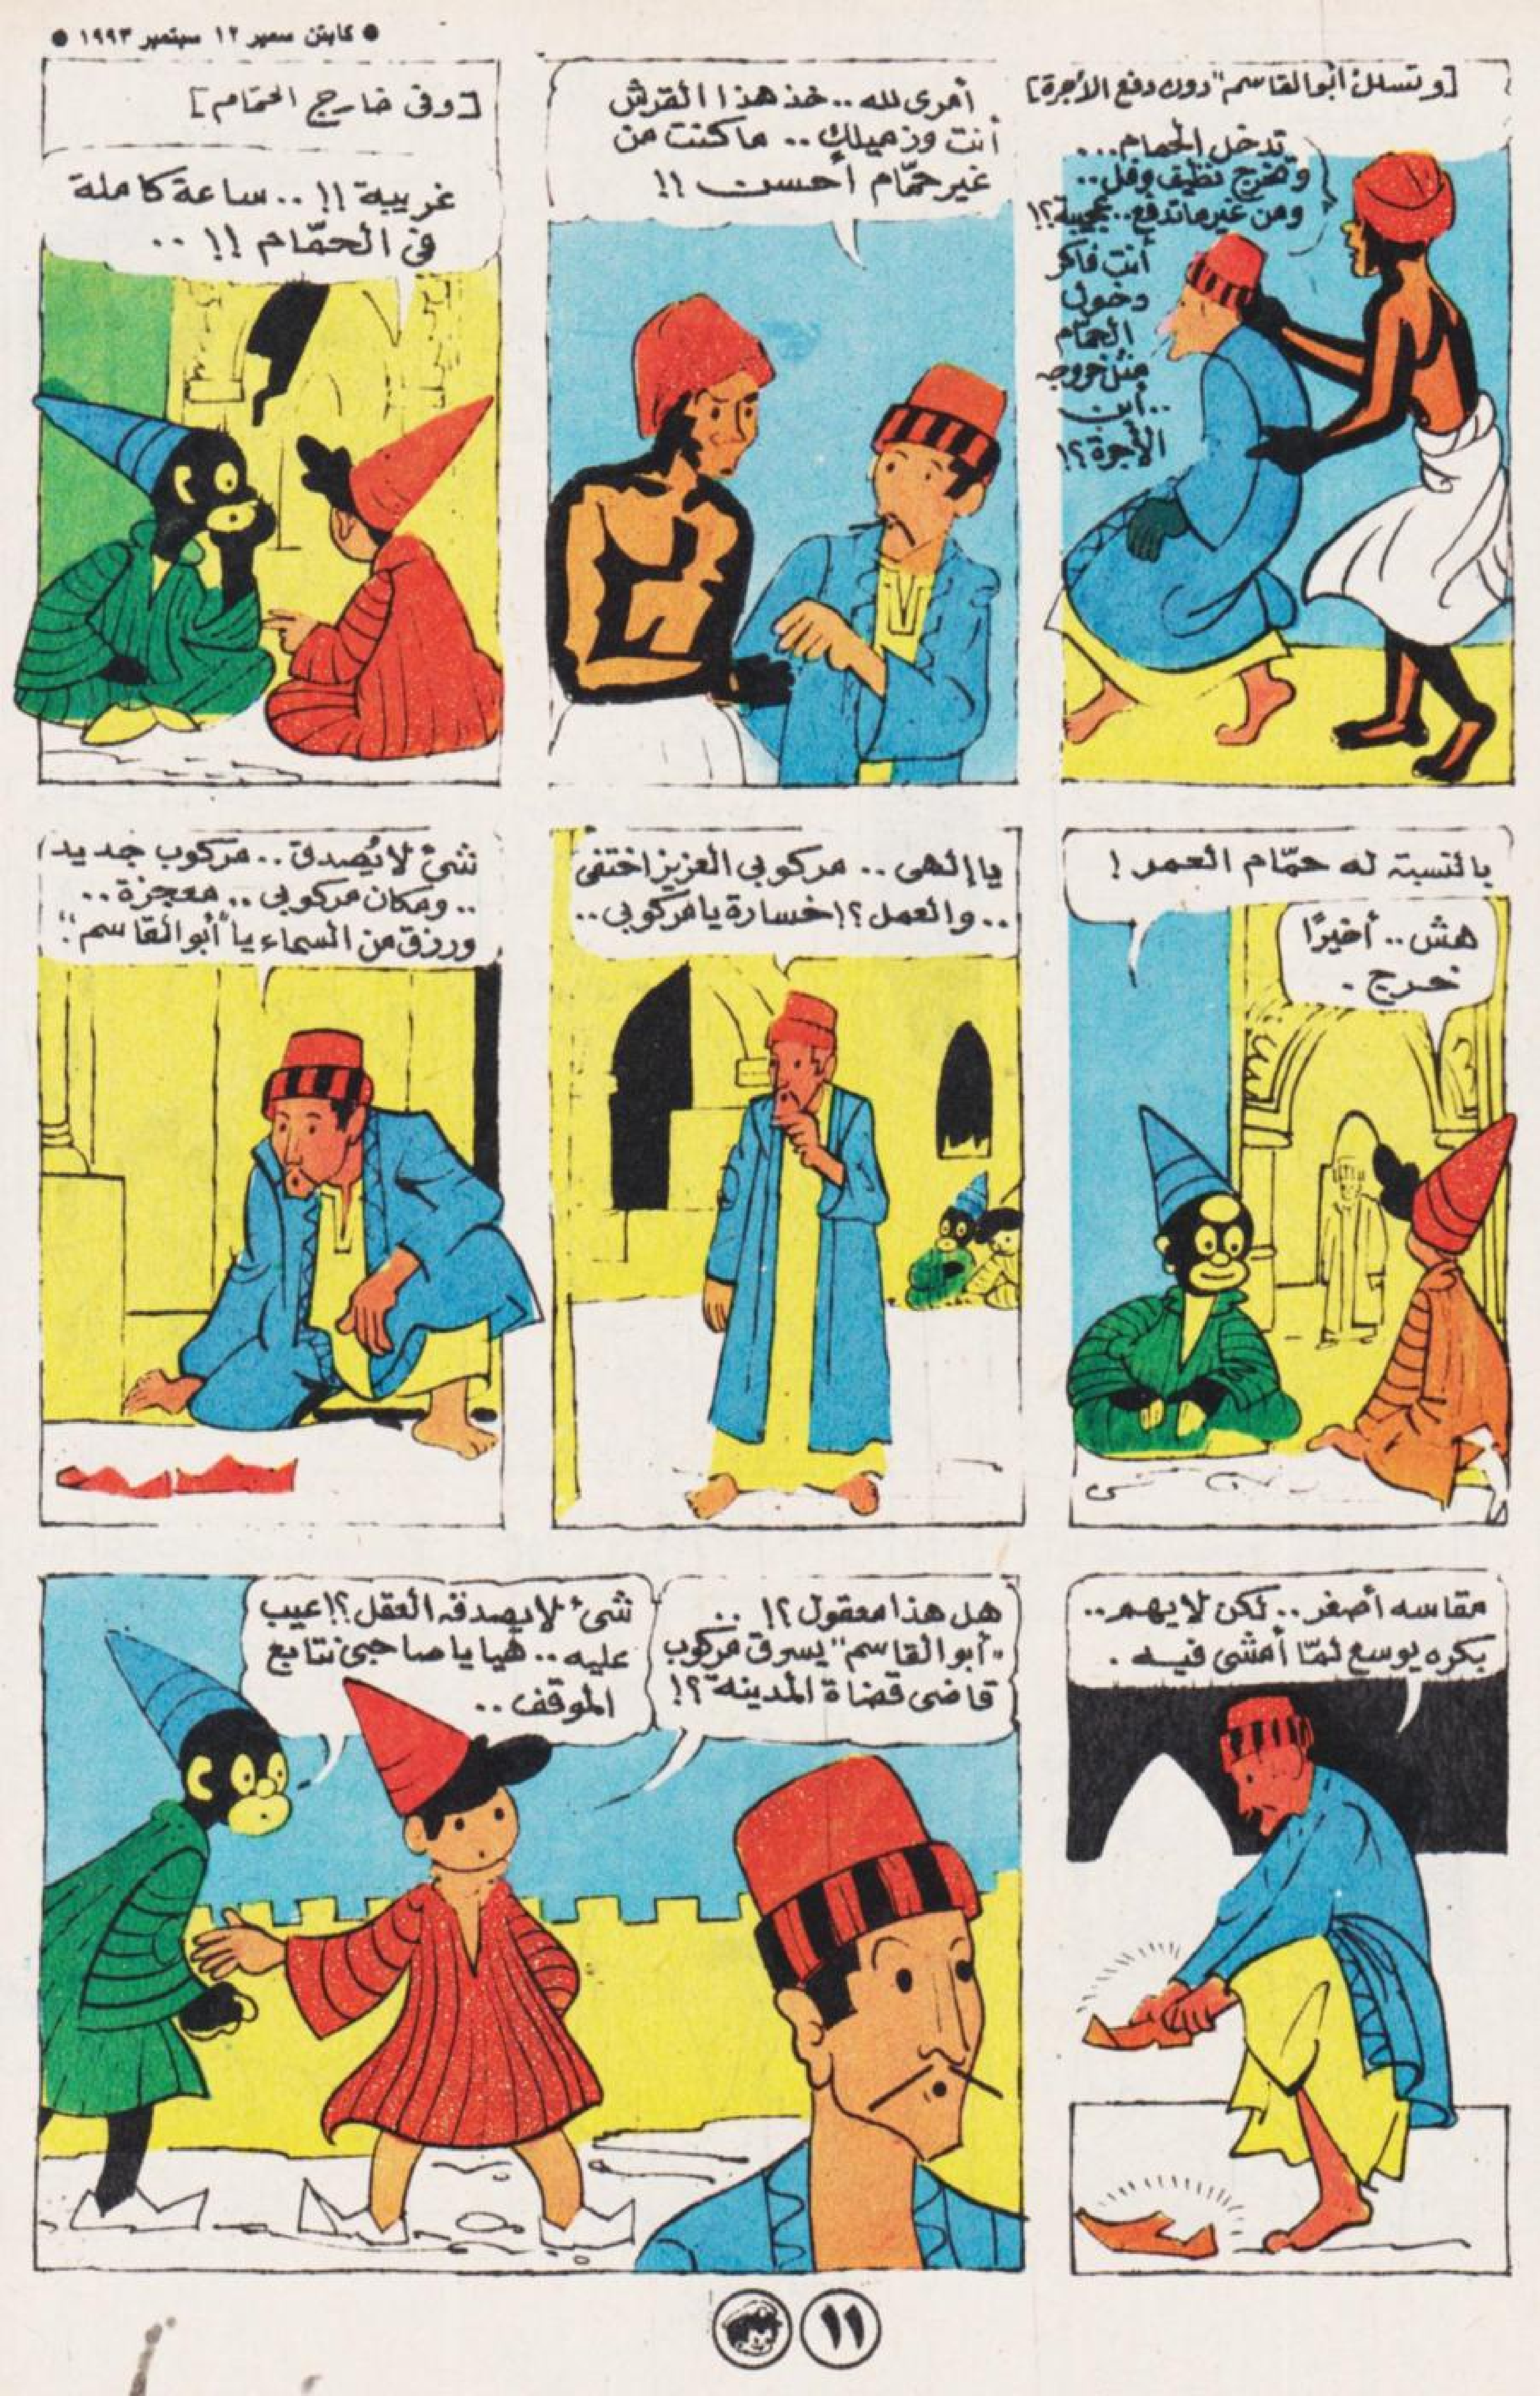 ● كابتن سمير ١٢ سبتمبر ١٩٩٣ ●
[وتسلل أبو القاسم" دون دفع الأجرة]
تدخل الحمام...
وتخرج نظيف وفل..
ومن غير ماتدفع.. عجيبة؟!
أنت فاكر
دخول
الحمام
مثل خروجه
..أين
الأجرة؟!
أمرى لله.. خذ هذا القرش
أنت وزميلك.. ما كنت من
غير حمّام أحسن!!
[وفى خارج الحمّام]
غريبة!!.. ساعة كاملة
فى الحمّام!!..
بالنسبة له حمّام العمر!
هش.. أخيرًا
خرج.
يا إلهى.. مركوبى العزيز اختفى
..والعمل؟! خسارة يا مركوبى..
شئ لا يُصدق.. مركوب جديد
..ومكان مركوبى.. معجزة..
ورزق من السماء يا "أبو القاسم"!
مقاسه أصغر.. لكن لا يهم..
بكره يوسع لمّا أمشى فيه.
هل هذا معقول؟!..
"أبو القاسم" يسرق مركوب
قاضى قضاة المدينة؟!
شئ لا يصدقه العقل؟! عيب
عليه.. هيا يا صاحبى نتابع
الموقف..
١١